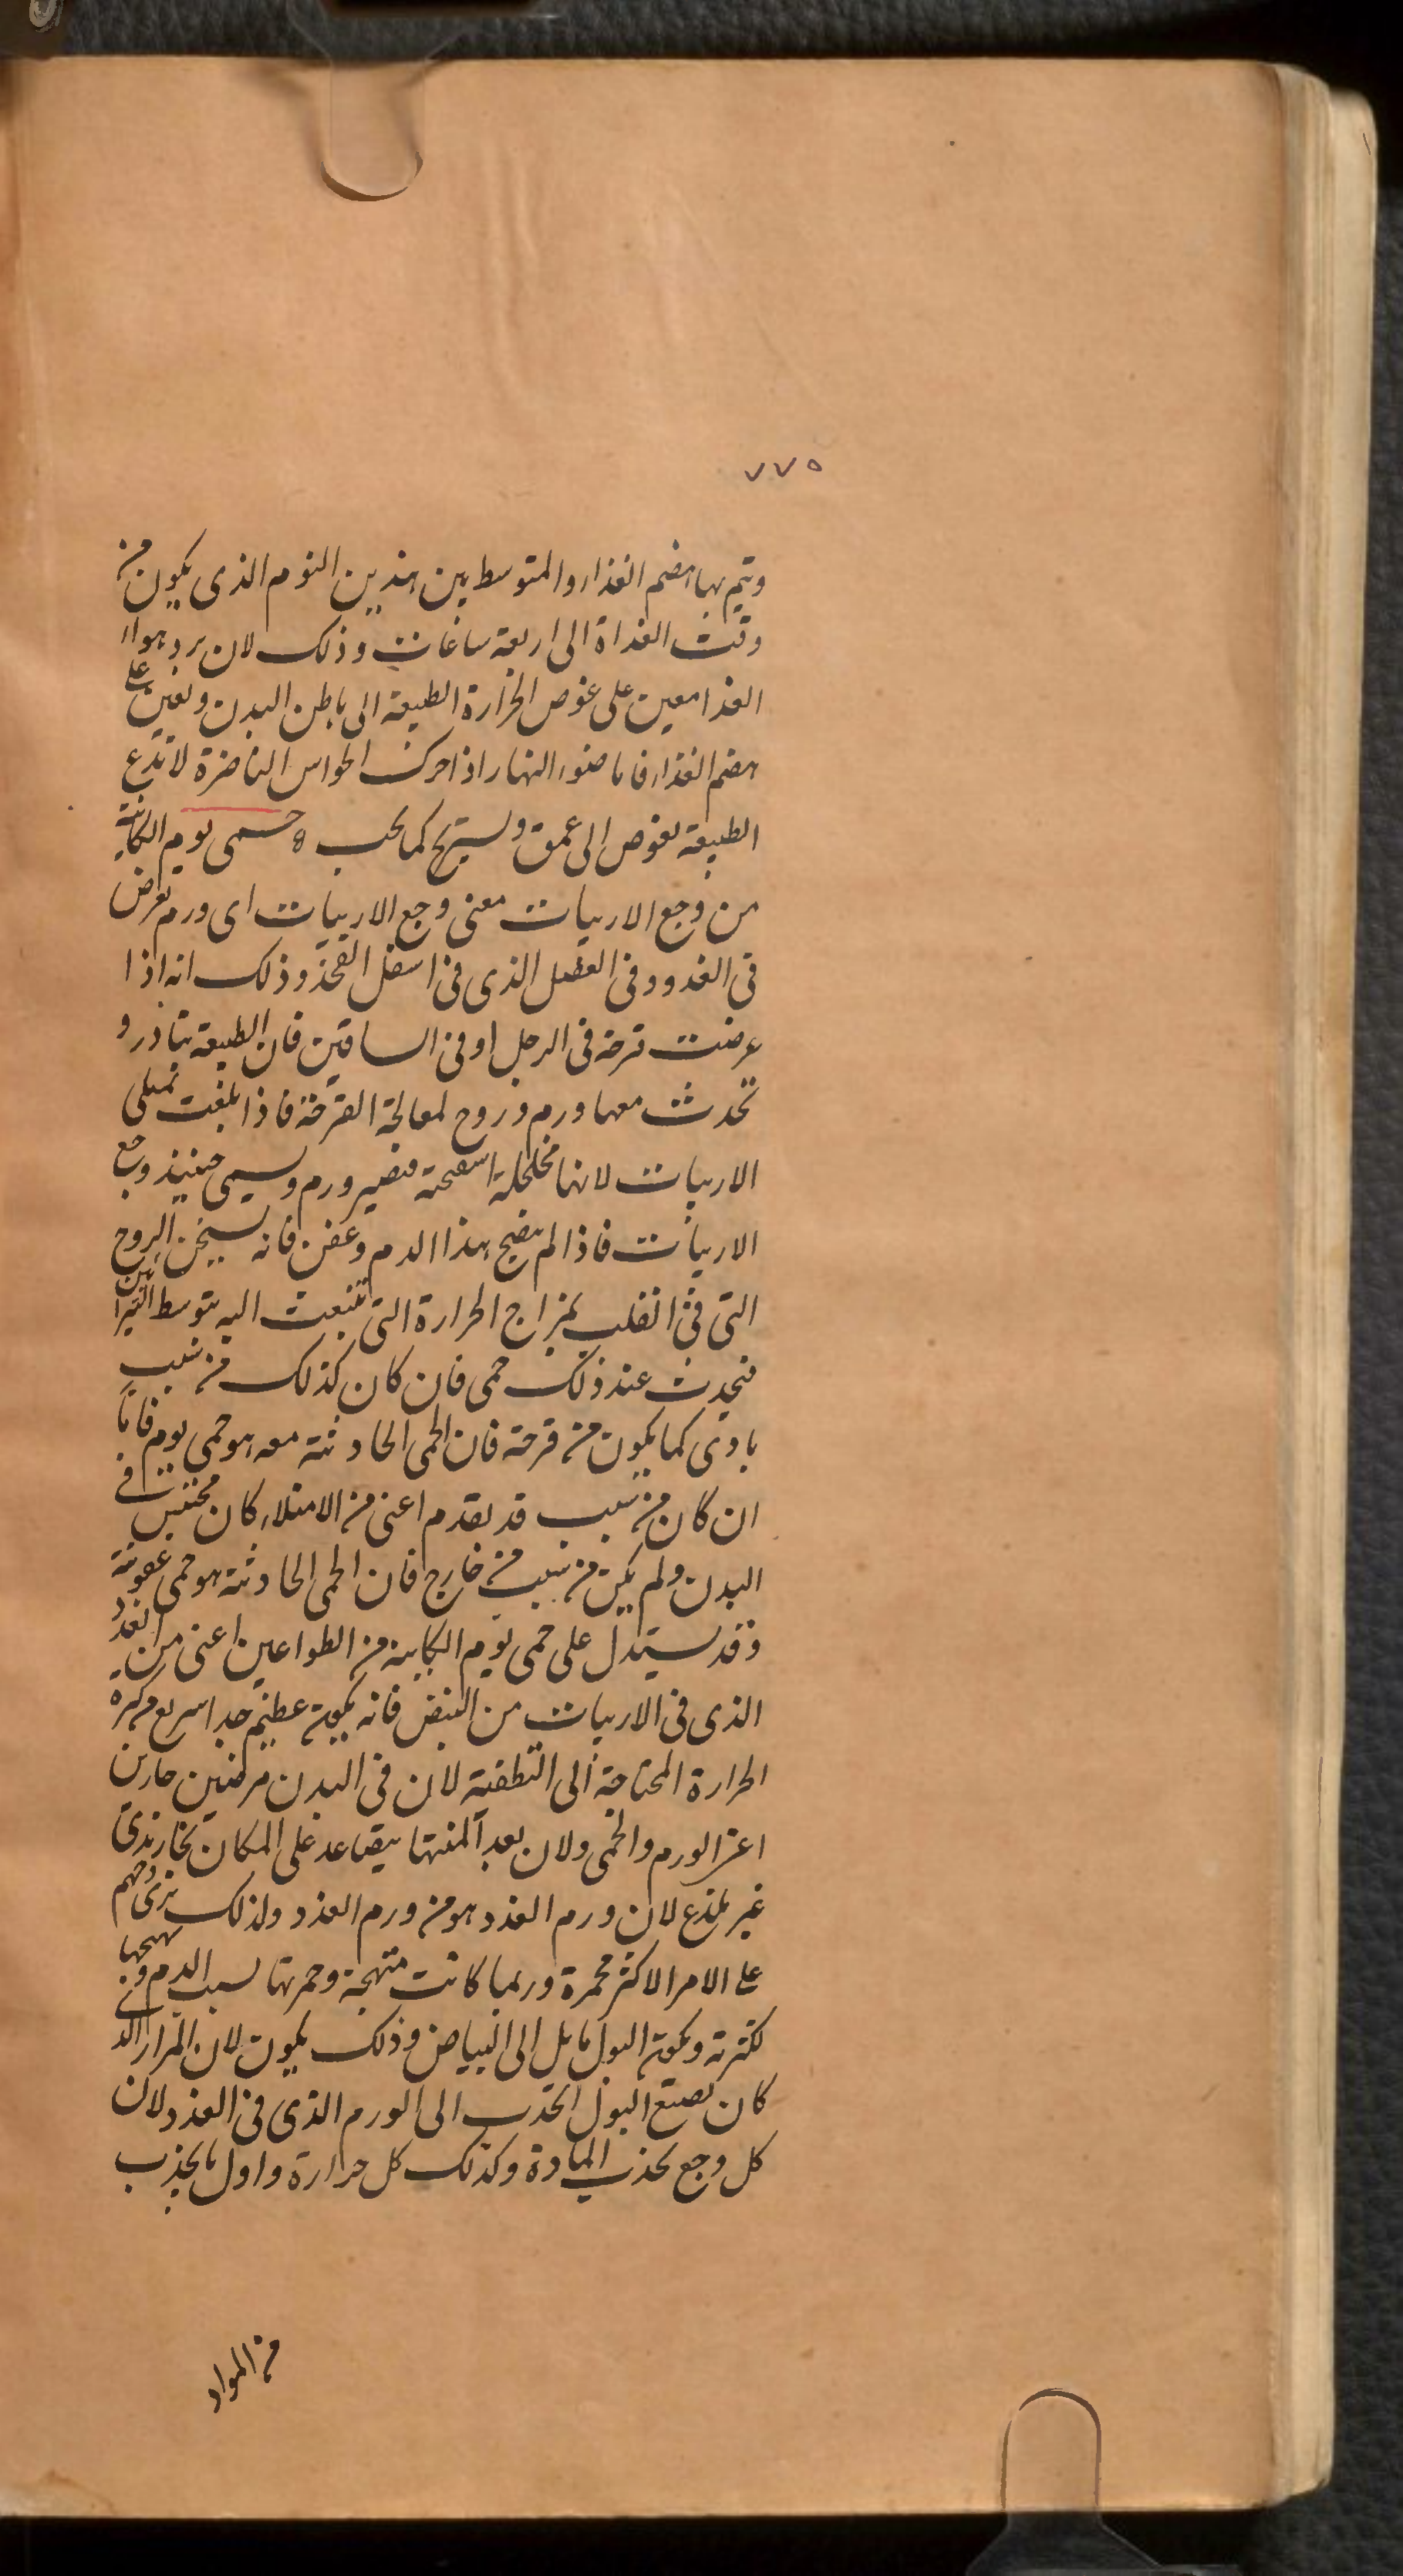 ٧٧٥
ويتم بها هضم الغذاء والمتوسط بين هذين النوم الذى يكون من
وقت الغداة الى اربعة ساعات وذلك لان برد هواء
الغدا معين على غوص الحرارة الطبيعة الى باطن البدن وتعين على
هضم الغذاء فاما ضوء النهار اذا حرك الحواس الناضرة لا تدع
الطبيعة تغوص الى عمق وتستريح كما يجب ه حمى يوم الكائنة
من وجع الاربيات معنى وجع الاربيات اى ورم تعرض
فى الغدد وفى العضل الذى فى اسفل الفخذ وذلك انه اذا
عرضت قرحة فى الرجل او فى الساقين فان الطبيعة تبادر و
تحدث معها ورم وروح لمعالجة القرحة فاذا بلغت تمتلى
الاربيات لانها مخلخلة اسفنجة فتصير ورم وتسمى حينئذ وجع
الاربيات فاذا لم ينضج هذا الدم وعفن فانه يسخن الروح
التى فى القلب بمزاج الحرارة التى تنبعث اليه بتوسط الشرائين
فيحدث عند ذلك حمى فان كان كذلك من سبب
بادى كما يكون من قرحة فان الحمى الحادثة معه هو حمى يوم فاما
ان كان من سبب قد تقدم اعنى من الامتلاء كان محتبس فى
البدن ولم يكن من سبب من خارج فان الحمى الحادثة هو حمى عفونة
وقد يستدل على حمى يوم الكاينة من الطواعين اعنى من الغدد
الذى فى الاربيات من النبض فانه يكون عظيم جدا سريع من كثرة
الحرارة المحتاجة الى التطفية لان فى البدن مرضين حارين
اعنى الورم والحمى ولان بعد المنتها يتصاعد على المكان بخار ندى
غير يلذع لان ورم الغدد هو من ورم الغدد ولذلك ترى وجههم
على الامر الاكثر محمرة وربما كانت متهجة وحمرتها لسبب الدم وتهيجها
لكثرته ويكون البول مايل الى البياض وذلك يكون لان المرار الذى
كان يصبغ البول انجذب الى الورم الذى فى الغدد لان
كل وجع يجذب المادة وكذلك كل حرارة واول ما يجذب
من المواد